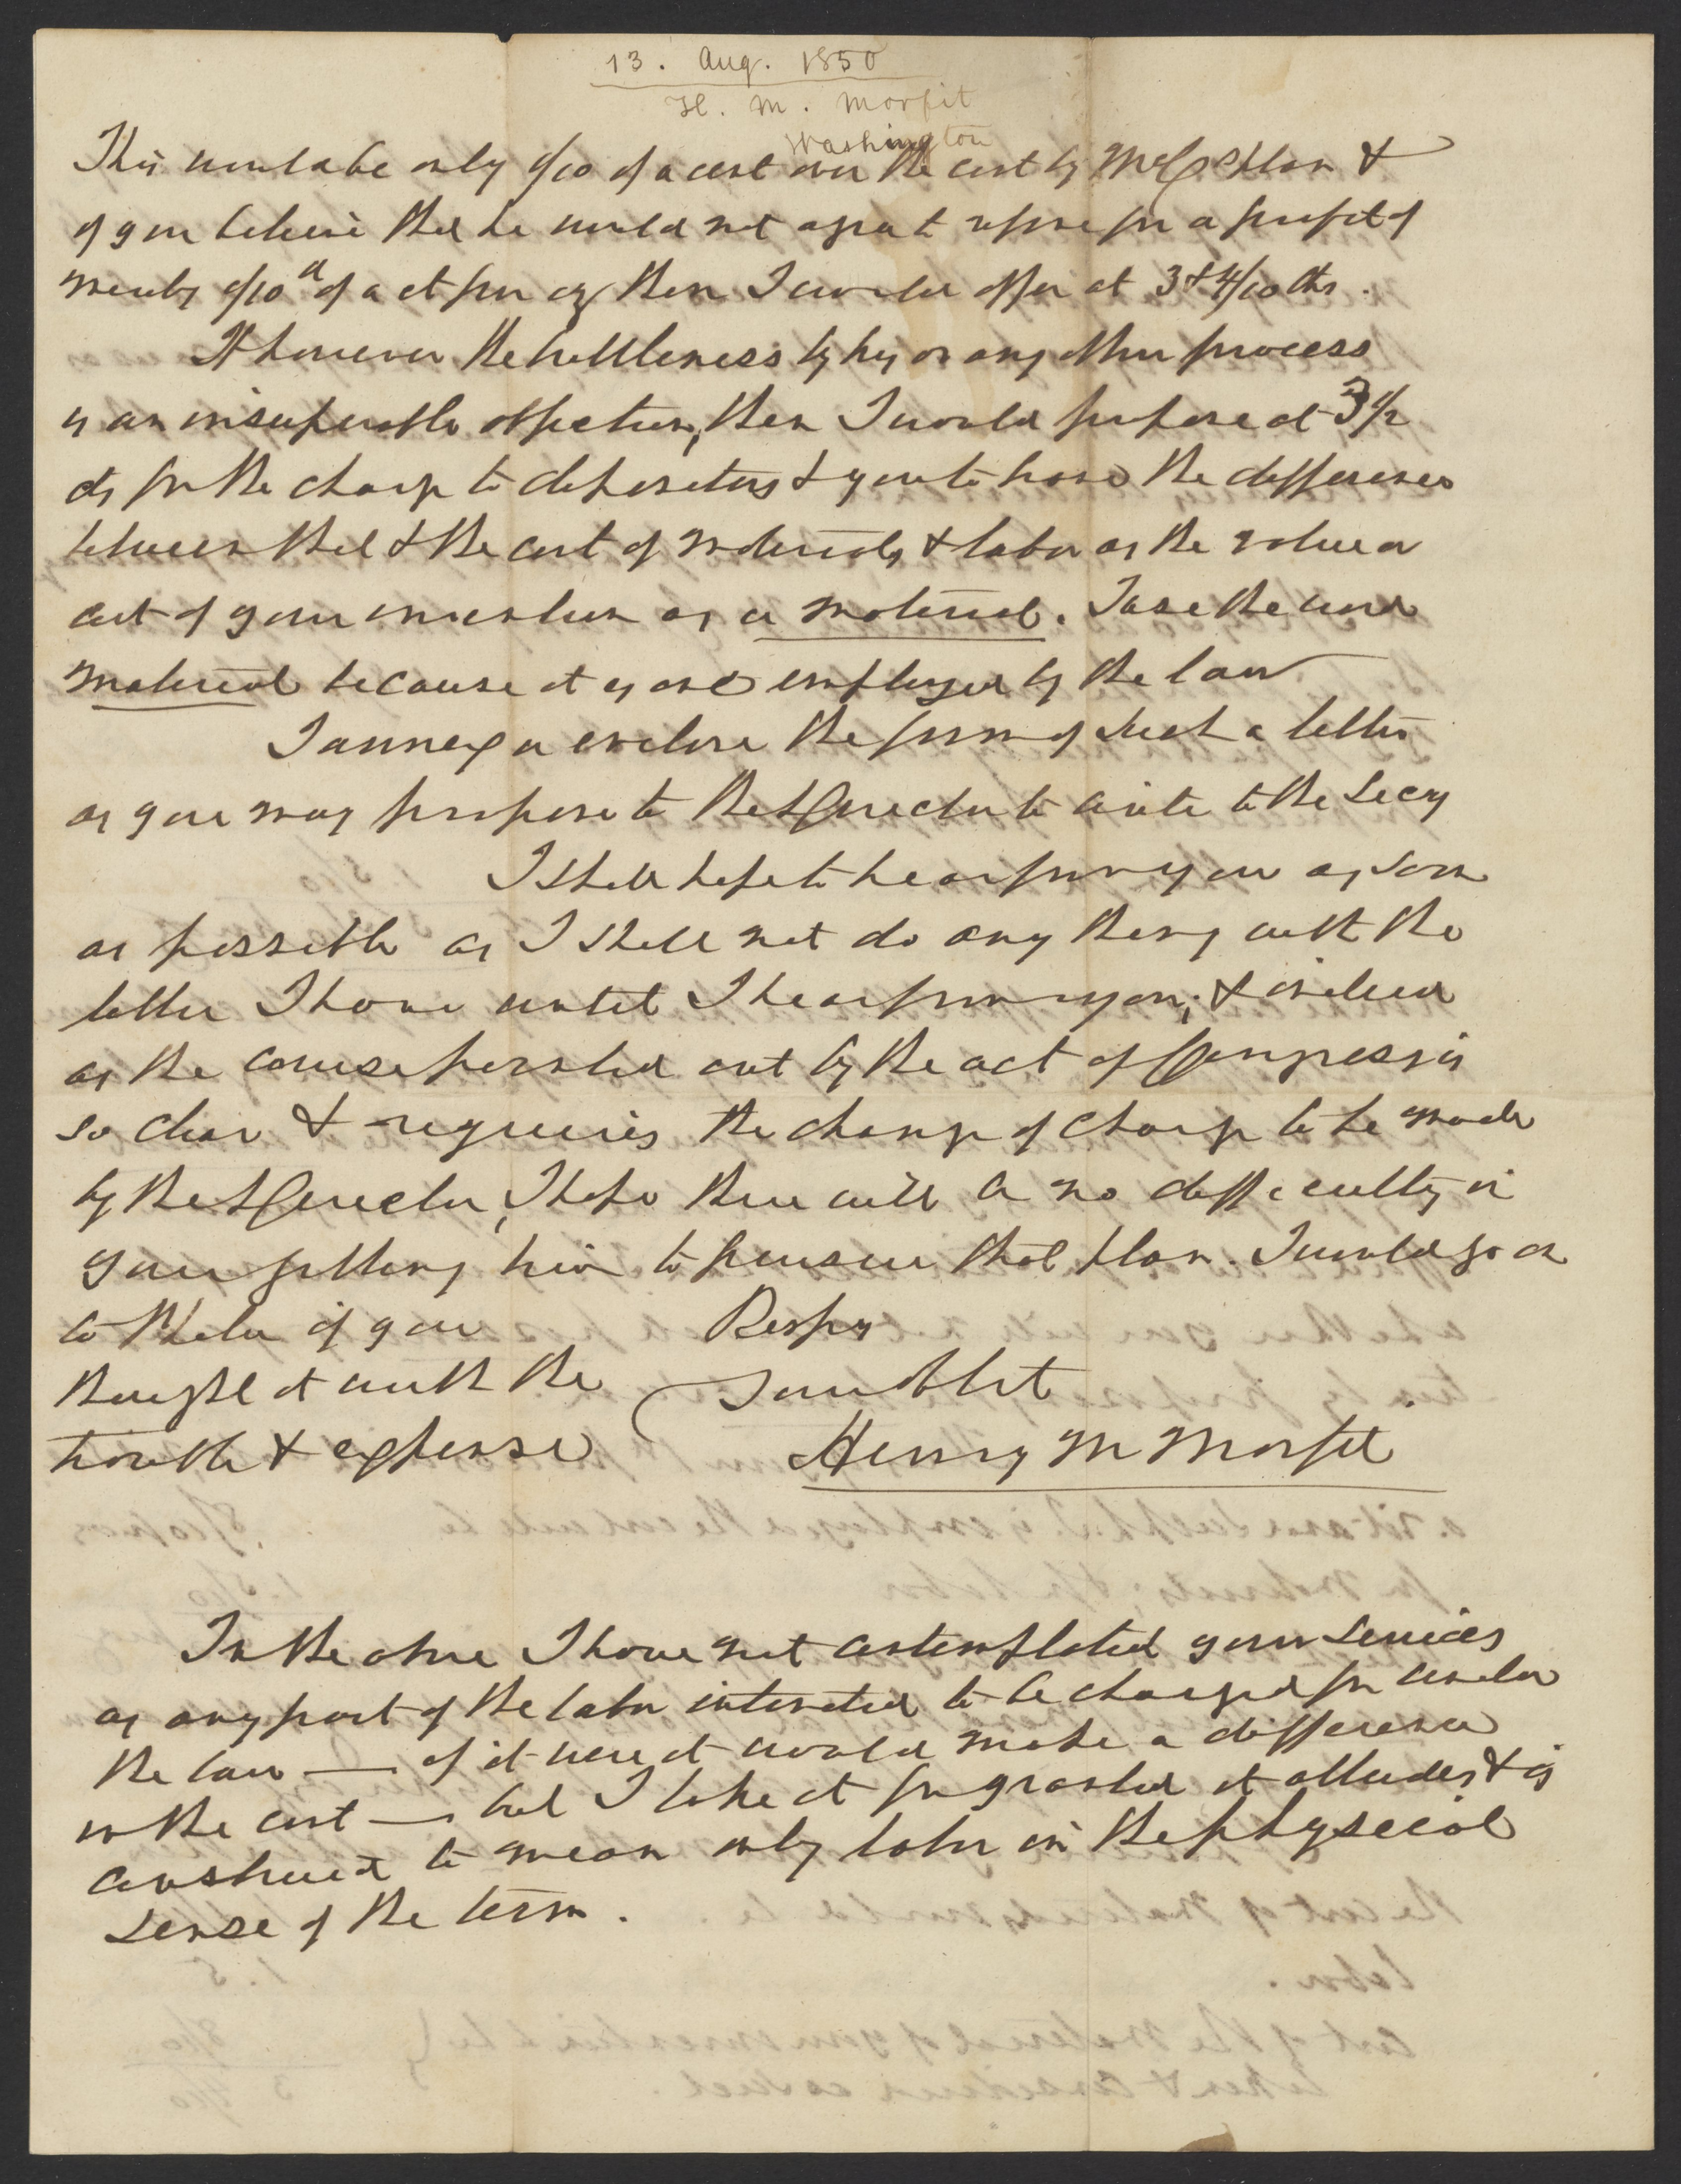 13. Aug. 1850
H. M. Morfit
Washington
This would be only 9/10 of a cent over the cost by McC's plan &
if you believe that he would not again to refuse for a profit of
merely 9/10 of a ct per oz then I would offer at 3 & 4/10 cts.
If however the brittleness by his or any other process
is an insuperable objection, then I would propose at 3 1/2
cts for the charge to depositors & you to have the difference
between that & the cost of materials & labor as the value or
cost of your invention as a material. I use the word
material because it is one employed by the law
I annex or enclose the form of such a letter
as you may propose to the Director to write to the Secy
I shall hope to hear from you as soon
as possible as I shall not do any thing with the
letter I have until I hear from you; & indeed
as the course pointed out by the act of Congress is
so clear & requires the change of charge to be made
by the Director, I hope there will be no difficulty in
your getting him to pursue that plan. I would go on
to Phila if you
thought it worth the
trouble & expense
Respy
Your Obt
Henry M Morfit
In the above I have not contemplated your services
as any part of the labor intended to be charged for under
the law — if it were it would make a difference
in the cost — but I take it for granted it alludes & is
construed to mean only labor in the physical
sense of the term.